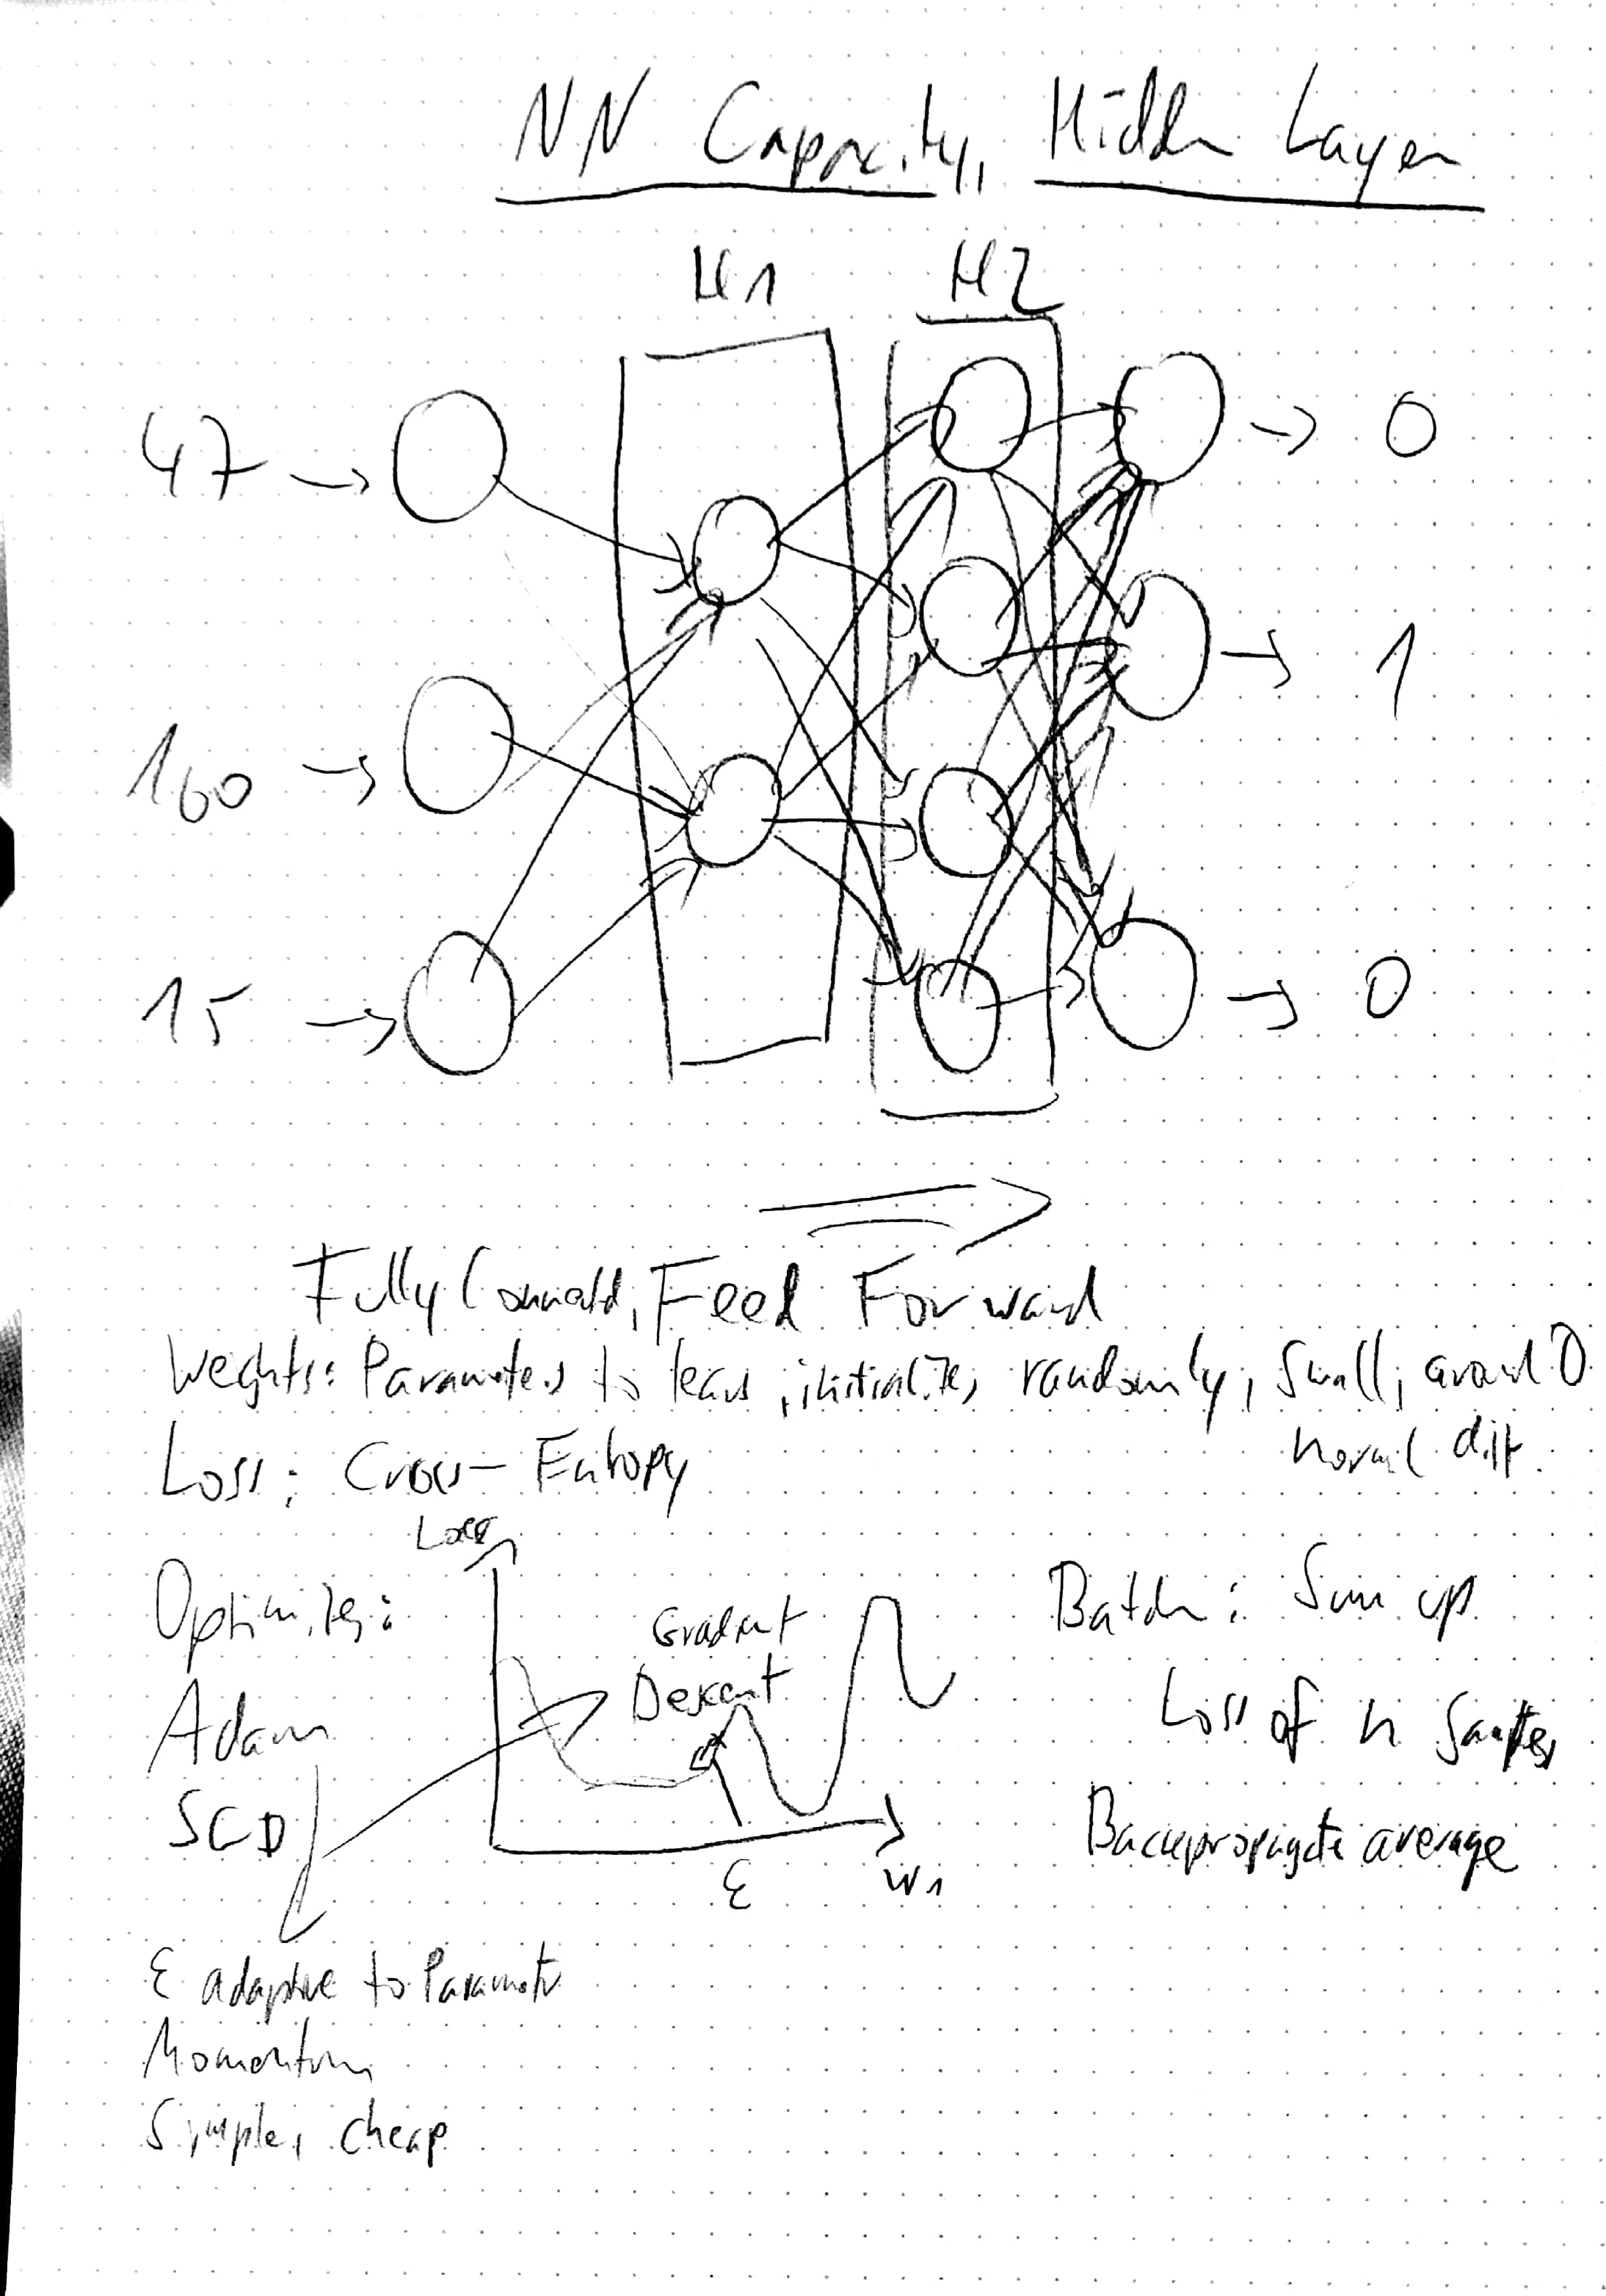 NN Capacity, Hidden Layer
H1 H2
47 → → 0
160 → → 1
15 → → 0
Fully Connected, Feed Forward
Weights: Parameters to learn, initialize, randomly, small, around 0
normal dist.
Loss: Cross-Entropy
Loss
Optimizer:
Adam
SGD
Gradient
Descent
ε w1
Batch: Sum up
Loss of n Samples
Backpropagate average
ε adaptive to Parameter
Momentum
Simple, cheap